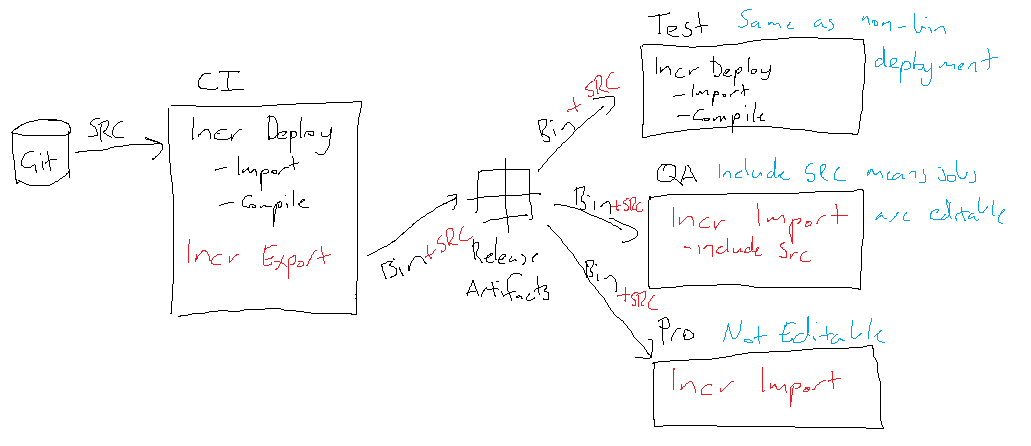 Git
SRC
CI
Incr Deploy
-Import
-Compile
Incr Export
Bin+SRC
Release
Artifacts
Bin + SRC
Test Same as non-bin
deployment
Incr Deploy
-Import
-Compile
Bin+SRC
QA Include SRC means jobs
are editable
Incr Import
-include Src
Bin+SRC
Pro Not Editable
Incr Import